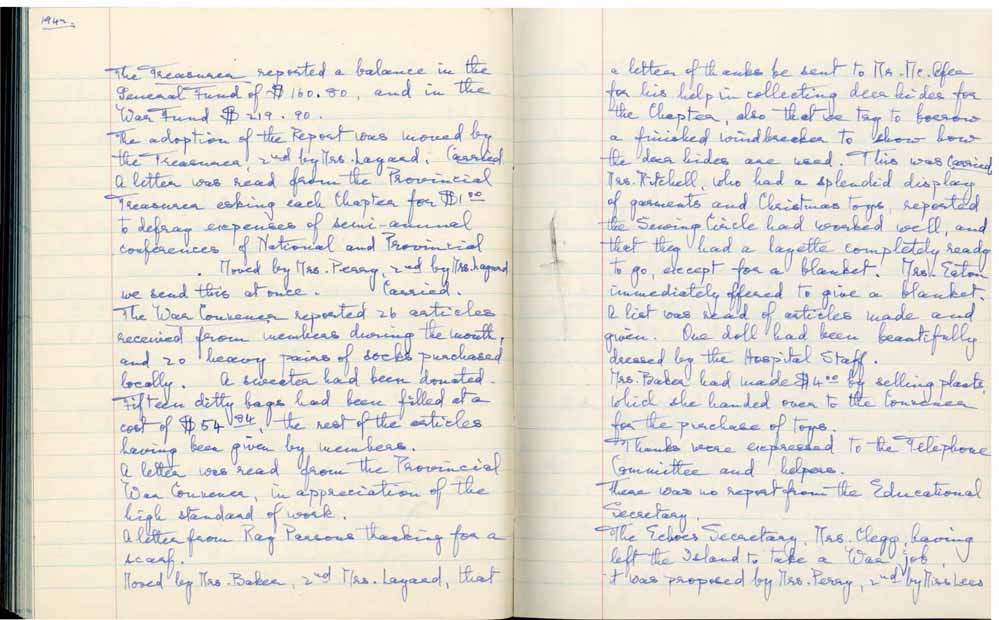 1942.
The Treasurer reported a balance in the
General Fund of $160.80, and in the
War Fund $219.90.
The adoption of the Report was moved by
the Treasurer, 2nd by Mrs. Layard. Carried.
A letter was read from the Provincial
Treasurer asking each Chapter for $1.00
to defray expenses of semi-annual
conferences of National and Provincial
. Moved by Mrs. Perry, 2nd by Mrs. Layard
we send this at once. Carried.
The War Convener reported 26 articles
received from members during the month,
and 20 heavy pairs of socks purchased
locally. A sweater had been donated.
Fifteen ditty bags had been filled at a
cost of $54.84, the rest of the articles
having been given by members.
A letter was read from the Provincial
War Convener, in appreciation of the
high standard of work.
A letter from Ray Parsons thanking for a
scarf.
Moved by Mrs. Baker, 2nd Mrs. Layard, that
a letter of thanks be sent to Mr. McAfee
for his help in collecting deer hides for
the Chapter, also that we try to borrow
a finished windbreaker to show how
the deer hides are used. This was Carried
Mrs. Mitchell, who had a splendid display
of garments and Christmas toys, reported
the Sewing Circle had worked well, and
that they had a layette completely ready
to go, except for a blanket. Mrs. Eaton
immediately offered to give a blanket.
A list was read of articles made and
given. One doll had been beautifully
dressed by the Hospital Staff.
Mrs. Baker had made $4.00 by selling plants,
which she handed over to the Convener
for the purchase of toys.
Thanks were expressed to the Telephone
Committee and helpers.
There was no report from the Educational
Secretary.
The Echoes Secretary, Mrs. Clegg, having
left the Island to take a War job,
it was proposed by Mrs. Perry, 2nd by Miss Lees